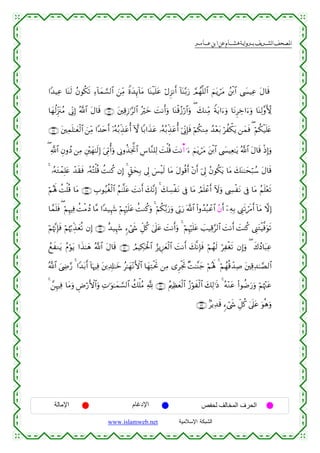 المصحف الشريف برواية هشام عن ابن عامر
قَالَ عِيسَى ٱبْنُ مَرْيَمَ ٱللَّهُمَّ رَبَّنَآ أَنزِلْ عَلَيْنَا مَآئِدَةً مِّنَ ٱلسَّمَآءِ تَكُونُ لَنَا عِيدًا
لِّأَوَّلِنَا وَءَاخِرِنَا وَءَايَةً مِّنكَ ۖ وَٱرْزُقْنَا وَأَنتَ خَيْرُ ٱلرَّٰزِقِينَ ۝ قَالَ ٱللَّهُ إِنِّى مُنَزِّلُهَا
عَلَيْكُمْ ۖ فَمَن يَكْفُرْ بَعْدُ مِنكُمْ فَإِنِّىٓ أُعَذِّبُهُۥ عَذَابًا لَّآ أُعَذِّبُهُۥٓ أَحَدًا مِّنَ ٱلْعَٰلَمِينَ ۝
وَإِذْ قَالَ ٱللَّهُ يَٰعِيسَى ٱبْنَ مَرْيَمَ ءَأَنتَ قُلْتَ لِلنَّاسِ ٱتَّخِذُونِى وَأُمِّىَ إِلَٰهَيْنِ مِن دُونِ ٱللَّهِ ۖ
قَالَ سُبْحَٰنَكَ مَا يَكُونُ لِىٓ أَنْ أَقُولَ مَا لَيْسَ لِى بِحَقٍّ ۚ إِن كُنتُ قُلْتُهُۥ فَقَدْ عَلِمْتَهُۥ ۚ
تَعْلَمُ مَا فِى نَفْسِى وَلَآ أَعْلَمُ مَا فِى نَفْسِكَ ۚ إِنَّكَ أَنتَ عَلَّٰمُ ٱلْغُيُوبِ ۝ مَا قُلْتُ لَهُمْ
إِلَّا مَآ أَمَرْتَنِى بِهِۦٓ أَنُ ٱعْبُدُوا۟ ٱللَّهَ رَبِّى وَرَبَّكُمْ ۚ وَكُنتُ عَلَيْهِمْ شَهِيدًا مَّا دُمْتُ فِيهِمْ ۖ فَلَمَّا
تَوَفَّيْتَنِى كُنتَ أَنتَ ٱلرَّقِيبَ عَلَيْهِمْ ۚ وَأَنتَ عَلَىٰ كُلِّ شَىْءٍ شَهِيدٌ ۝ إِن تُعَذِّبْهُمْ فَإِنَّهُمْ
عِبَادُكَ ۖ وَإِن تَغْفِرْ لَهُمْ فَإِنَّكَ أَنتَ ٱلْعَزِيزُ ٱلْحَكِيمُ ۝ قَالَ ٱللَّهُ هَٰذَا يَوْمُ يَنفَعُ
ٱلصَّٰدِقِينَ صِدْقُهُمْ ۚ لَهُمْ جَنَّٰتٌ تَجْرِى مِن تَحْتِهَا ٱلْأَنْهَٰرُ خَٰلِدِينَ فِيهَآ أَبَدًا ۚ رَّضِىَ ٱللَّهُ
عَنْهُمْ وَرَضُوا۟ عَنْهُ ۚ ذَٰلِكَ ٱلْفَوْزُ ٱلْعَظِيمُ ۝ لِلَّهِ مُلْكُ ٱلسَّمَٰوَٰتِ وَٱلْأَرْضِ وَمَا فِيهِنَّ ۚ
وَهُوَ عَلَىٰ كُلِّ شَىْءٍ قَدِيرٌۢ ۝
الحرف المخالف لحفص الإدغام الإمالة
الشبكة الإسلامية www.islamweb.net